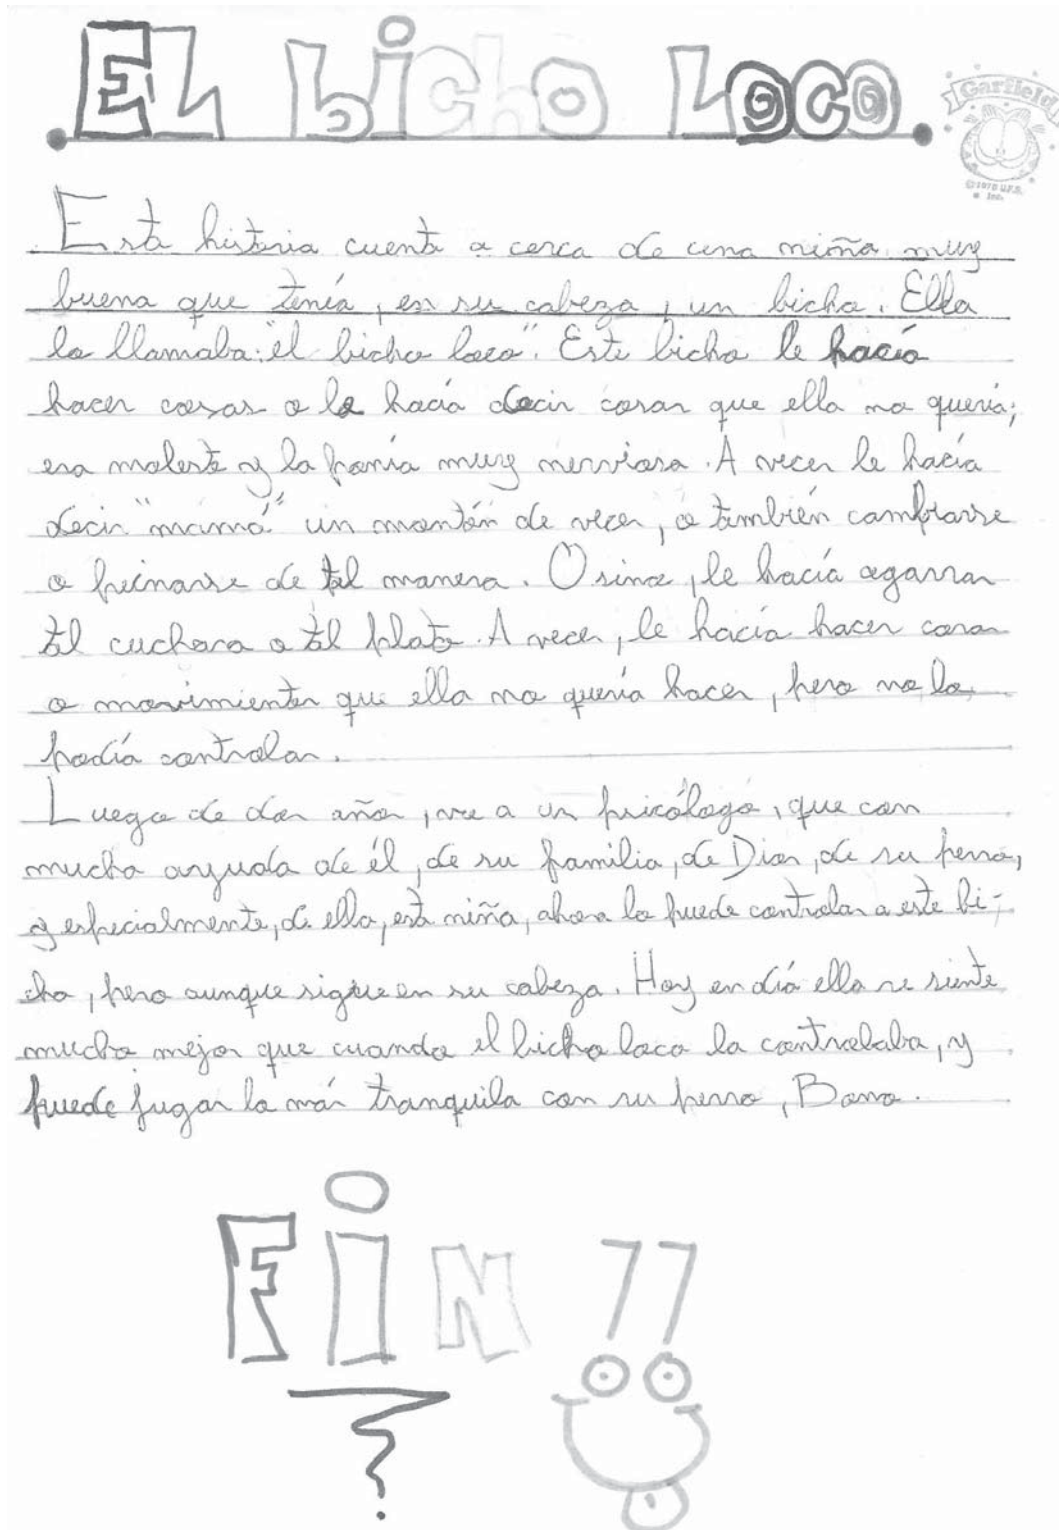 EL bicho Loco
Garfield
©1978 U.F.S.
Inc.
Esta historia cuenta a cerca de una niña muy
buena que tenía, en su cabeza, un bicho. Ella
lo llamaba: "el bicho loco". Este bicho le hacía
hacer cosas o la hacía decir cosas que ella no quería;
era molesto y la ponía muy nerviosa. A veces le hacía
decir "mamá" un montón de veces, o también cambiarse
o peinarse de tal manera. O sino, le hacía agarrar
tal cuchara o tal plato. A veces, le hacía hacer caras
o movimientos que ella no quería hacer, pero no lo
podía controlar.
Luego de dos años, ve a un psicólogo, que con
mucha ayuda de él, de su familia, de Dios, de su perro,
y especialmente, de ella, esta niña, ahora lo puede controlar a este bi-
cho, pero aunque sigue en su cabeza. Hoy en día ella se siente
mucho mejor que cuando el bicho loco la controlaba, y
puede jugar lo más tranquila con su perro,
FiN